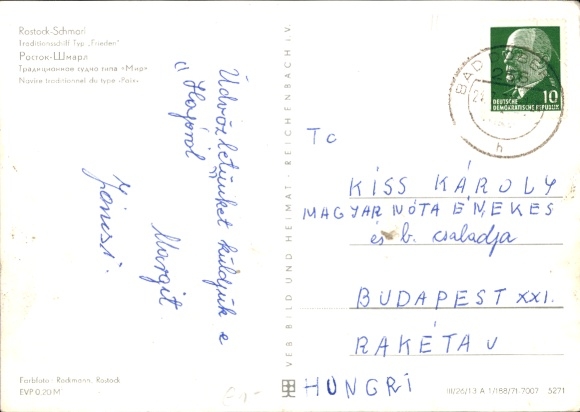 Rostock-Schmarl
Traditionsschiff Typ „Frieden"
Росток-Шмарл
Традиционное судно типа «Мир»
Navire traditionnel du type «Paix»
Üdvözletünket küldjük e
"Hajóról"
Margit
Jáncsi.
VEB BILD UND HEIMAT · REICHENBACH i.V.
BAD
10
DEUTSCHE
DEMOKRATISCHE REPUBLIK
h
To
KISS KÁROLY
MAGYAR NÓTA ÉNEKES
és b. családja
BUDAPEST XXI.
RAKÉTA U
HUNGRI
Farbfoto: Rockmann, Rostock
EVP 0,20 M
III/26/13 A 1/188/71-7007 5271